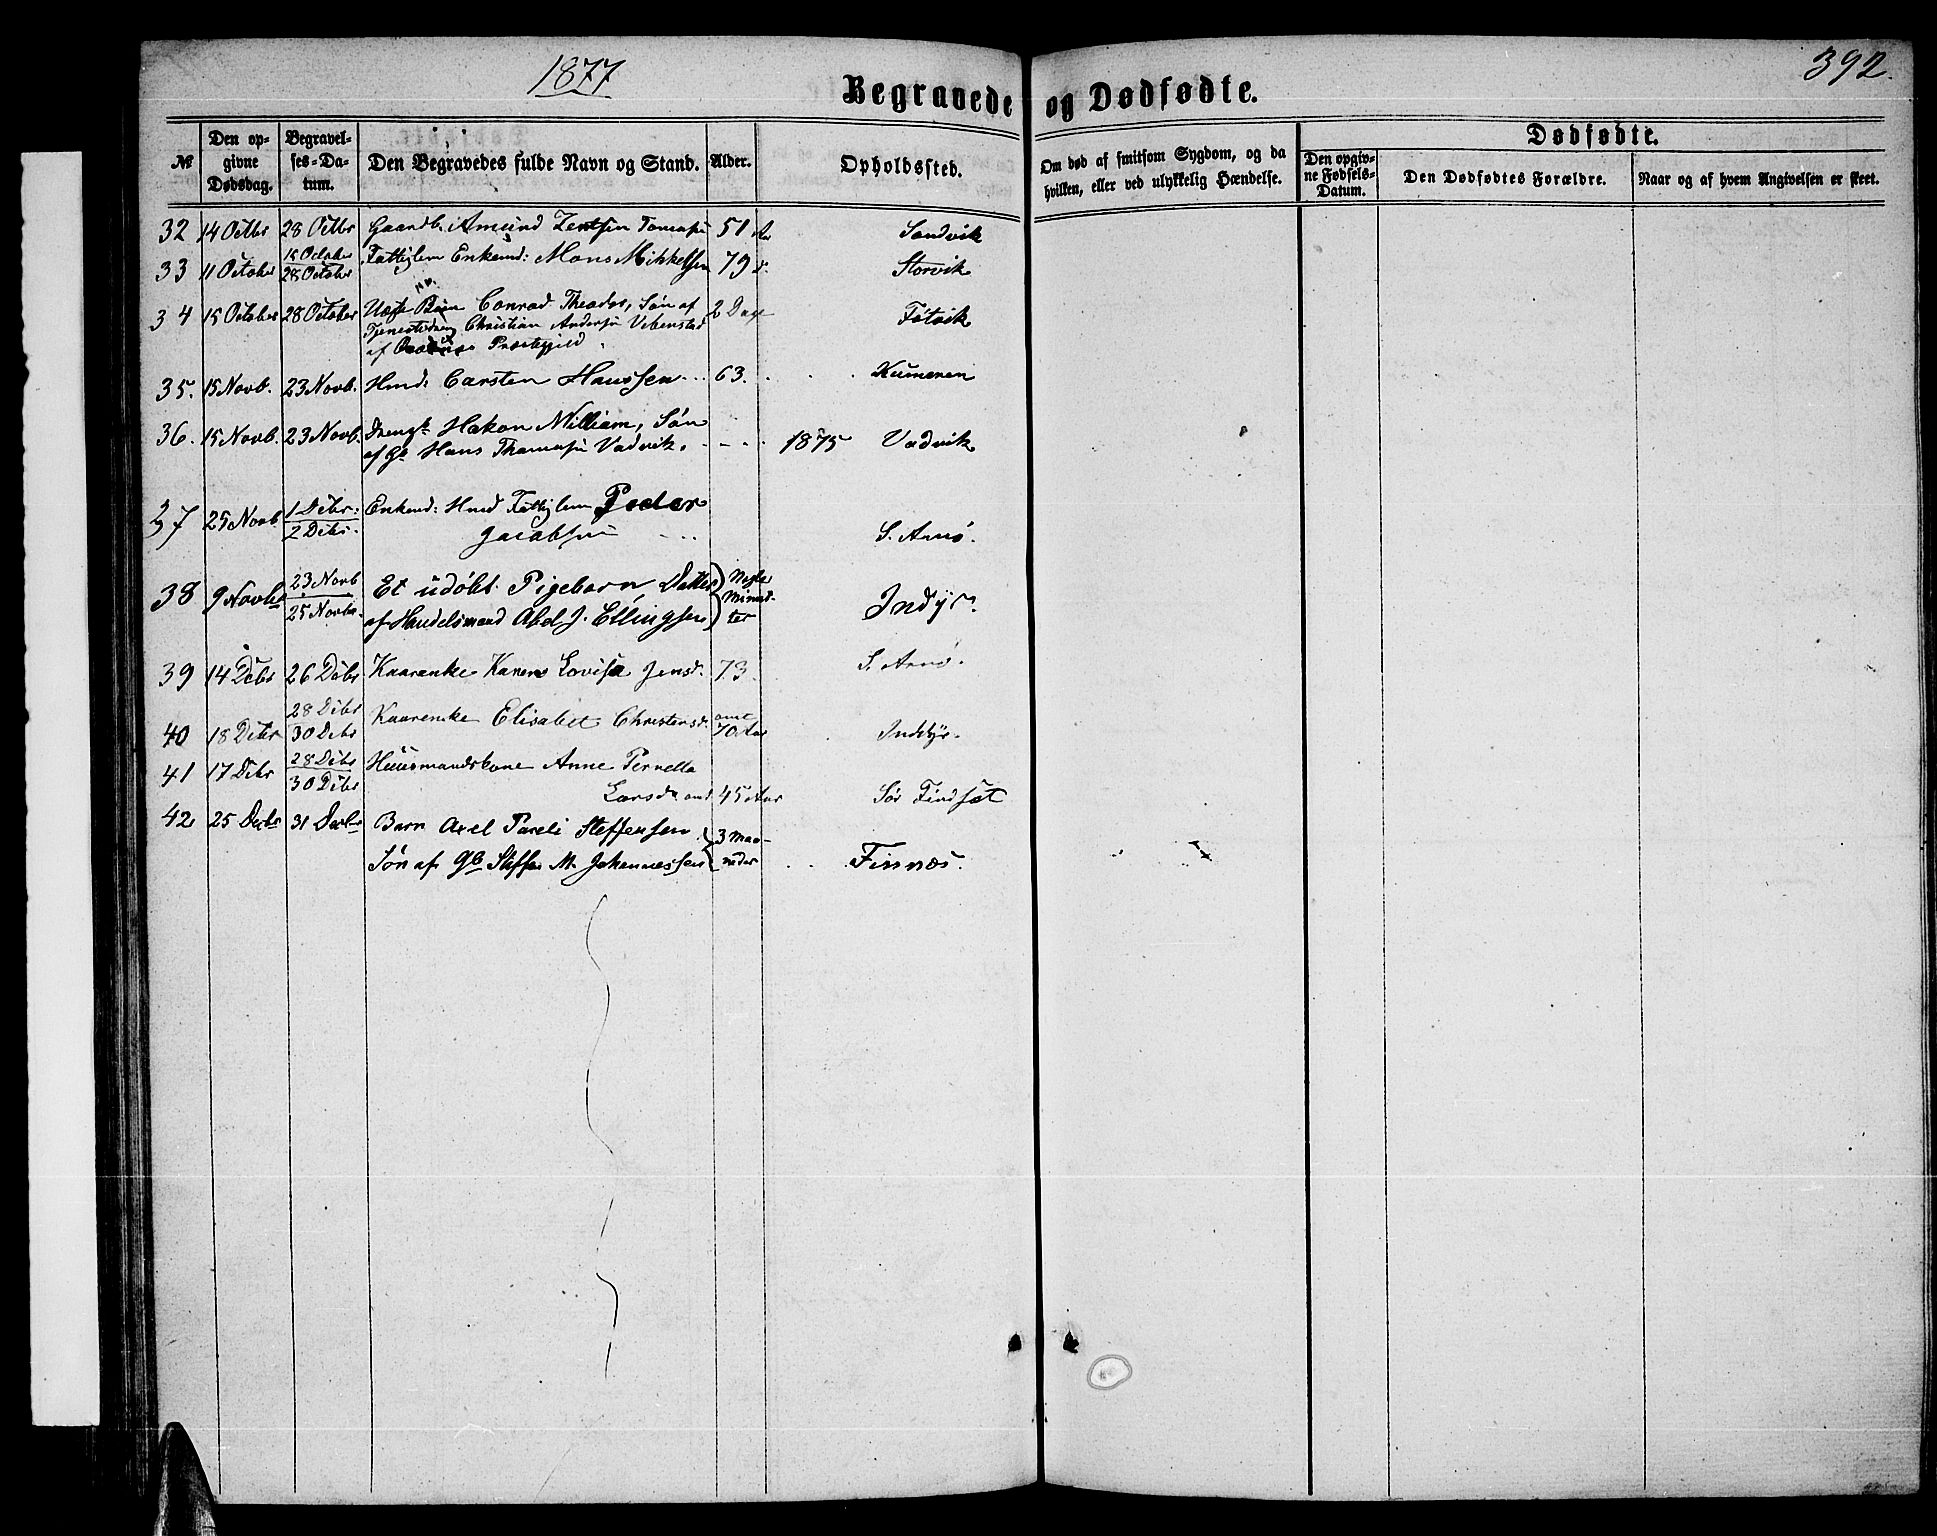 1877
392.
Begravede og Dødfødte.
№
Den opgivne Dødsdag.
Begravelses-Datum.
Den Begravedes fulde Navn og Stand.
Alder.
Opholdssted.
Om død af smitsom Sygdom, og da hvilken, eller ved ulykkelig Hændelse.
Dødfødte.
Den opgivne Fødsels-Datum.
Den Dødfødtes Forældre.
Naar og af hvem Angivelsen er skeet.
32 14 Octbr 28 Octbr Gaardb. Amund Tomasen 51 Aar Sandvik
33 11 October 15 October 28 October Fattiglem Enkemd: Mons Mikkelsen 79 Storvik
34 15 October 28 October Uægte Barn Conrad Theodor, Søn af 2 Dage
Tjenestedreng Christian Andersen Vebenstad
af Præstegjeld
35. 15 Novb. 23 Novb. Hmd: Carsten Hanssen 63. Kumeren
36. 15 Novb. 23 Novb. Hakon William, Søn
af Gb Hans Thomasen Vadvik. 1875 Vadvik
37 25 Novb 1 Decbr: 2 Decbr. Enkemd: Hmd Fattiglem Peder
Jacobsen S. Arnø.
38 9 Novbr 23 Novb 25 Novbr. Et udøbt Pigebarn Datter Nogle
af Handelsmand Abel J. Ellingsen Minutter Indyr.
39 14 Decbr 26 Decbr Kaarenke Karen Lovisa Jensd. 73 S. Arnø.
40 18 Decbr 28 Decbr 30 Decbr Kaarenke Elisabet Christensd. omt 70 Aar Inddyr.
41 17 Decbr 28 Decbr 30 Decbr Huusmandskone Anne Pernella
Larsdr omt 45 Aar Sør Findset
42 25 Decbr 31 Decbr Barn Axel Pareli Steffensen 3 Maaneder
Søn af Gb Steffen M. Johannessen Finnæs.